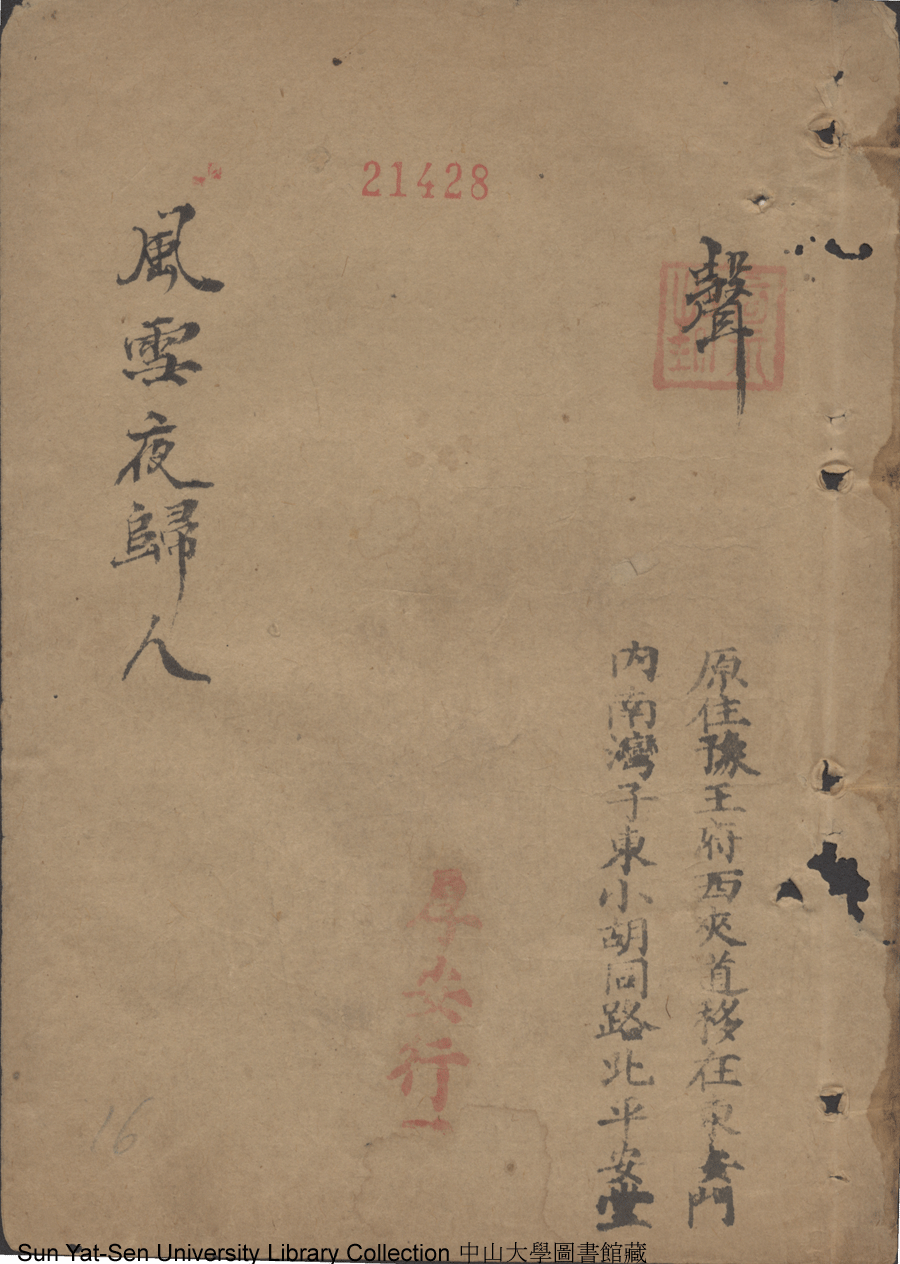 21428
聲
原住豫王府西夾道移在東安門
內南灣子東小胡同路北平安堂
平安行
風雪夜歸人
16
Sun Yat-Sen University Library Collection 中山大學圖書館藏